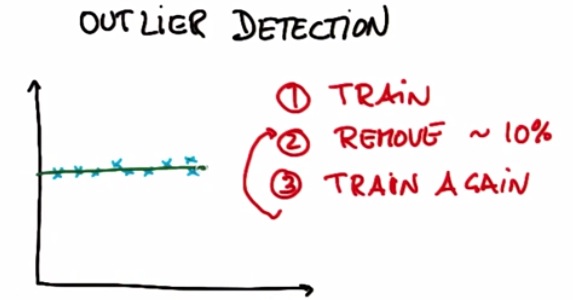 OUTLIER DETECTION
① TRAIN
② REMOVE ~ 10%
③ TRAIN AGAIN